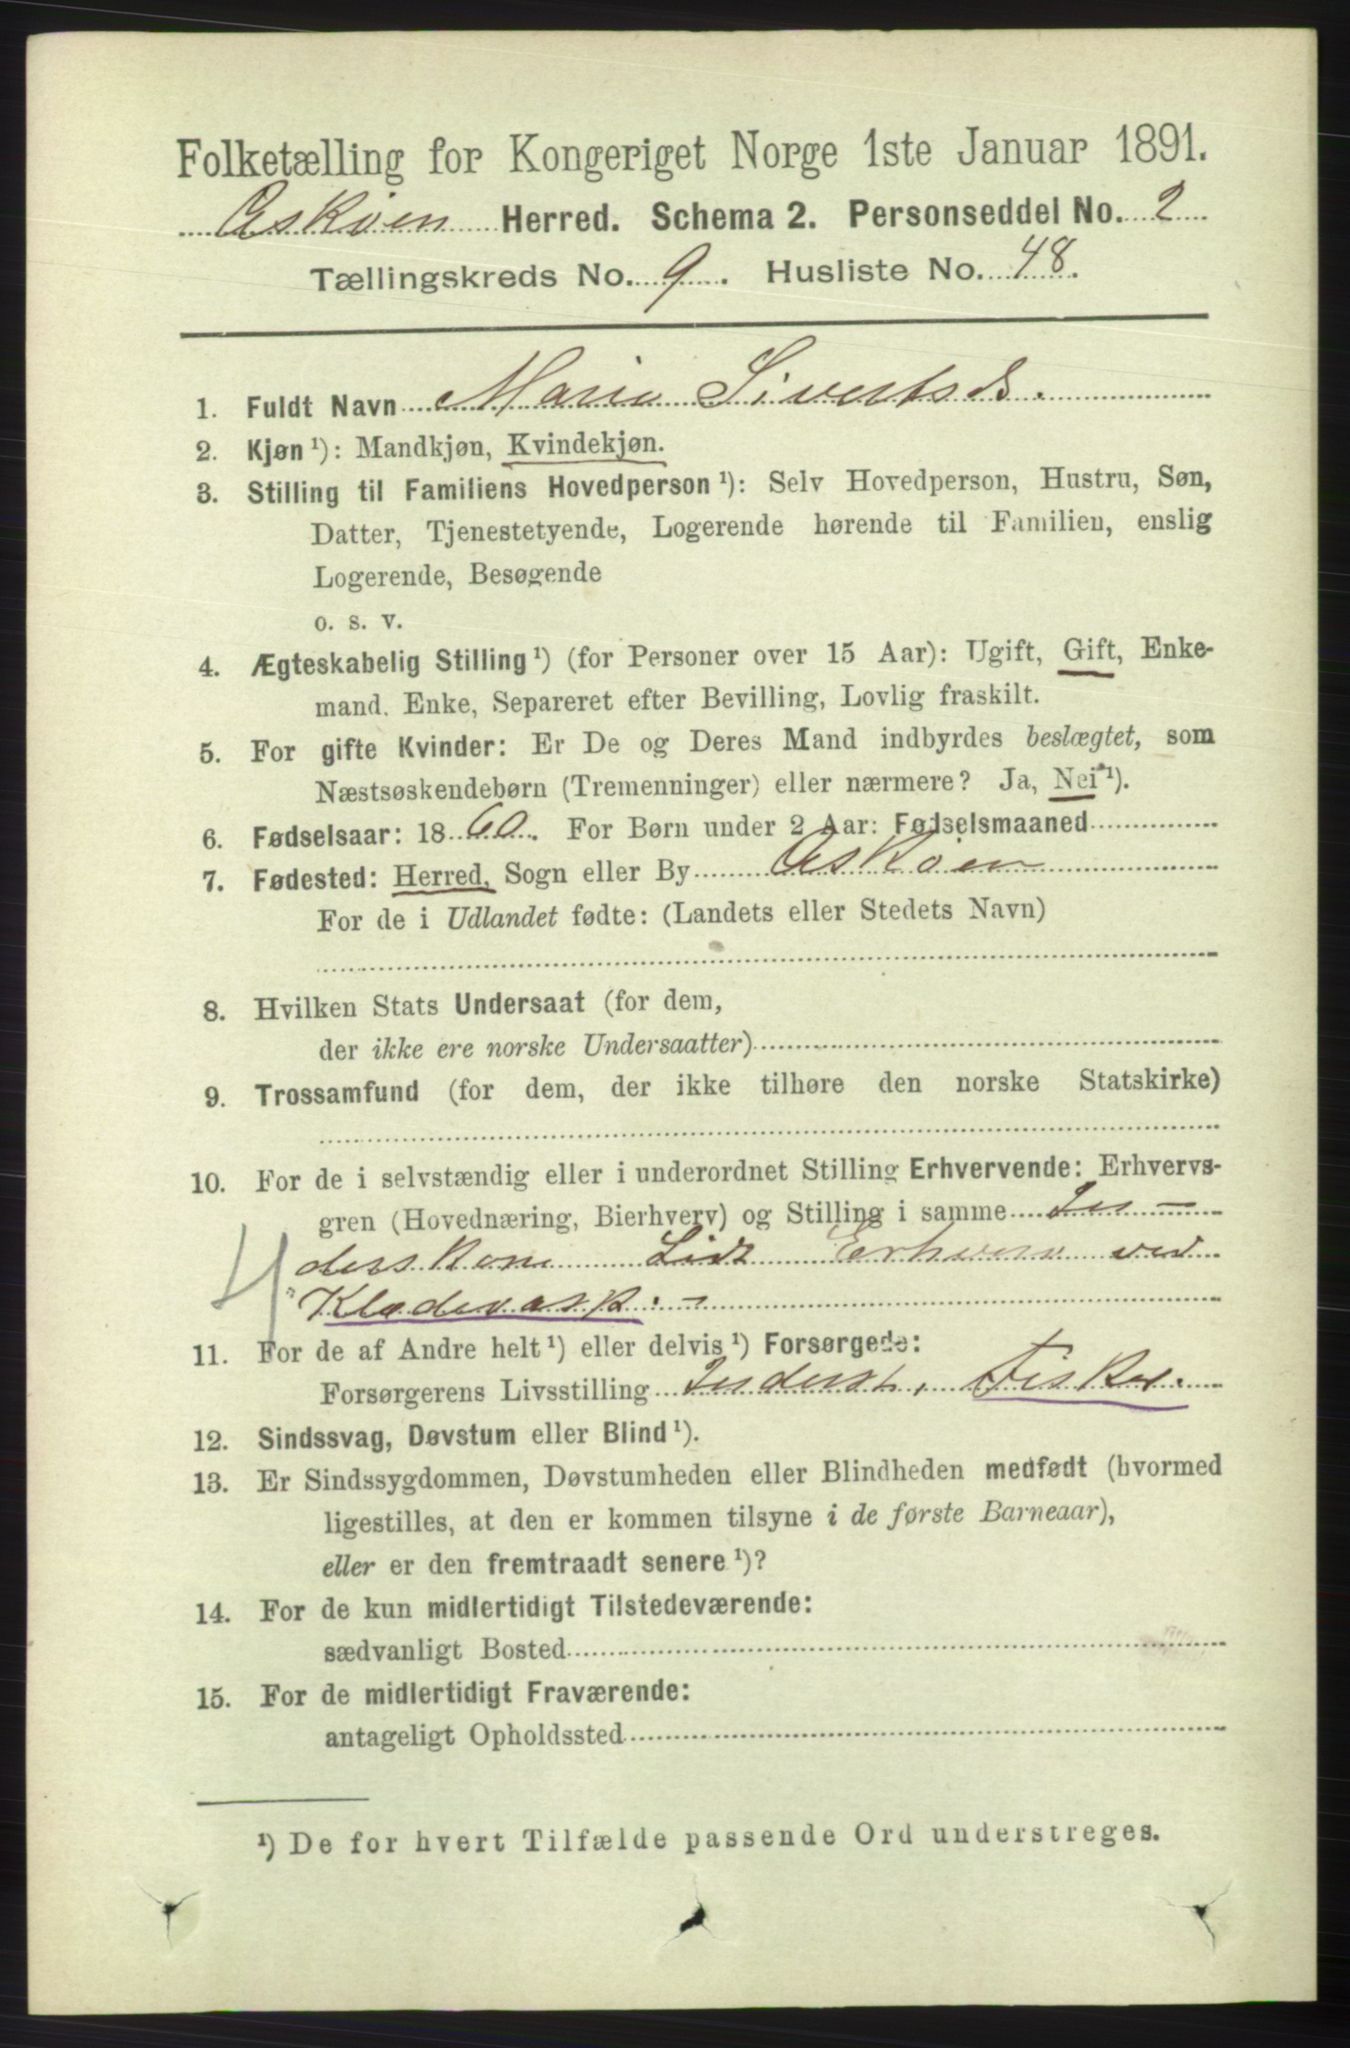 Folketælling for Kongeriget Norge 1ste Januar 1891.
Askøen Herred. Schema 2. Personseddel No. 2
Tællingskreds No. 9. Husliste No. 48.
1. Fuldt Navn Maria Sivertsd.
2. Kjøn ¹): Mandkjøn, Kvindekjøn.
3. Stilling til Familiens Hovedperson ¹): Selv Hovedperson, Hustru, Søn,
Datter, Tjenestetyende, Logerende hørende til Familien, enslig
Logerende, Besøgende
o. s. v.
4. Ægteskabelig Stilling ¹) (for Personer over 15 Aar): Ugift, Gift, Enke-
mand. Enke, Separeret efter Bevilling, Lovlig fraskilt.
5. For gifte Kvinder: Er De og Deres Mand indbyrdes beslægtet, som
Næstsøskendebørn (Tremenninger) eller nærmere? Ja, Nei ¹).
6. Fødselsaar: 1860. For Børn under 2 Aar: Fødselsmaaned
7. Fødested: Herred, Sogn eller By Askøen
For de i Udlandet fødte: (Landets eller Stedets Navn)
8. Hvilken Stats Undersaat (for dem,
der ikke ere norske Undersaatter)
9. Trossamfund (for dem, der ikke tilhøre den norske Statskirke)
10. For de i selvstændig eller i underordnet Stilling Erhvervende: Erhvervs-
gren (Hovednæring, Bierhverv) og Stilling i samme In-
derskone Lidt Erhverv ved
Klædevask. -
11. For de af Andre helt ¹) eller delvis ¹) Forsørgede:
Forsørgerens Livsstilling Inderst, Fisker.
12. Sindssvag, Døvstum eller Blind ¹).
13. Er Sindssygdommen, Døvstumheden eller Blindheden medfødt (hvormed
ligestilles, at den er kommen tilsyne i de første Barneaar),
eller er den fremtraadt senere ¹)?
14. For de kun midlertidigt Tilstedeværende:
sædvanligt Bosted
15. For de midlertidigt Fraværende:
antageligt Opholdssted
¹) De for hvert Tilfælde passende Ord understreges.